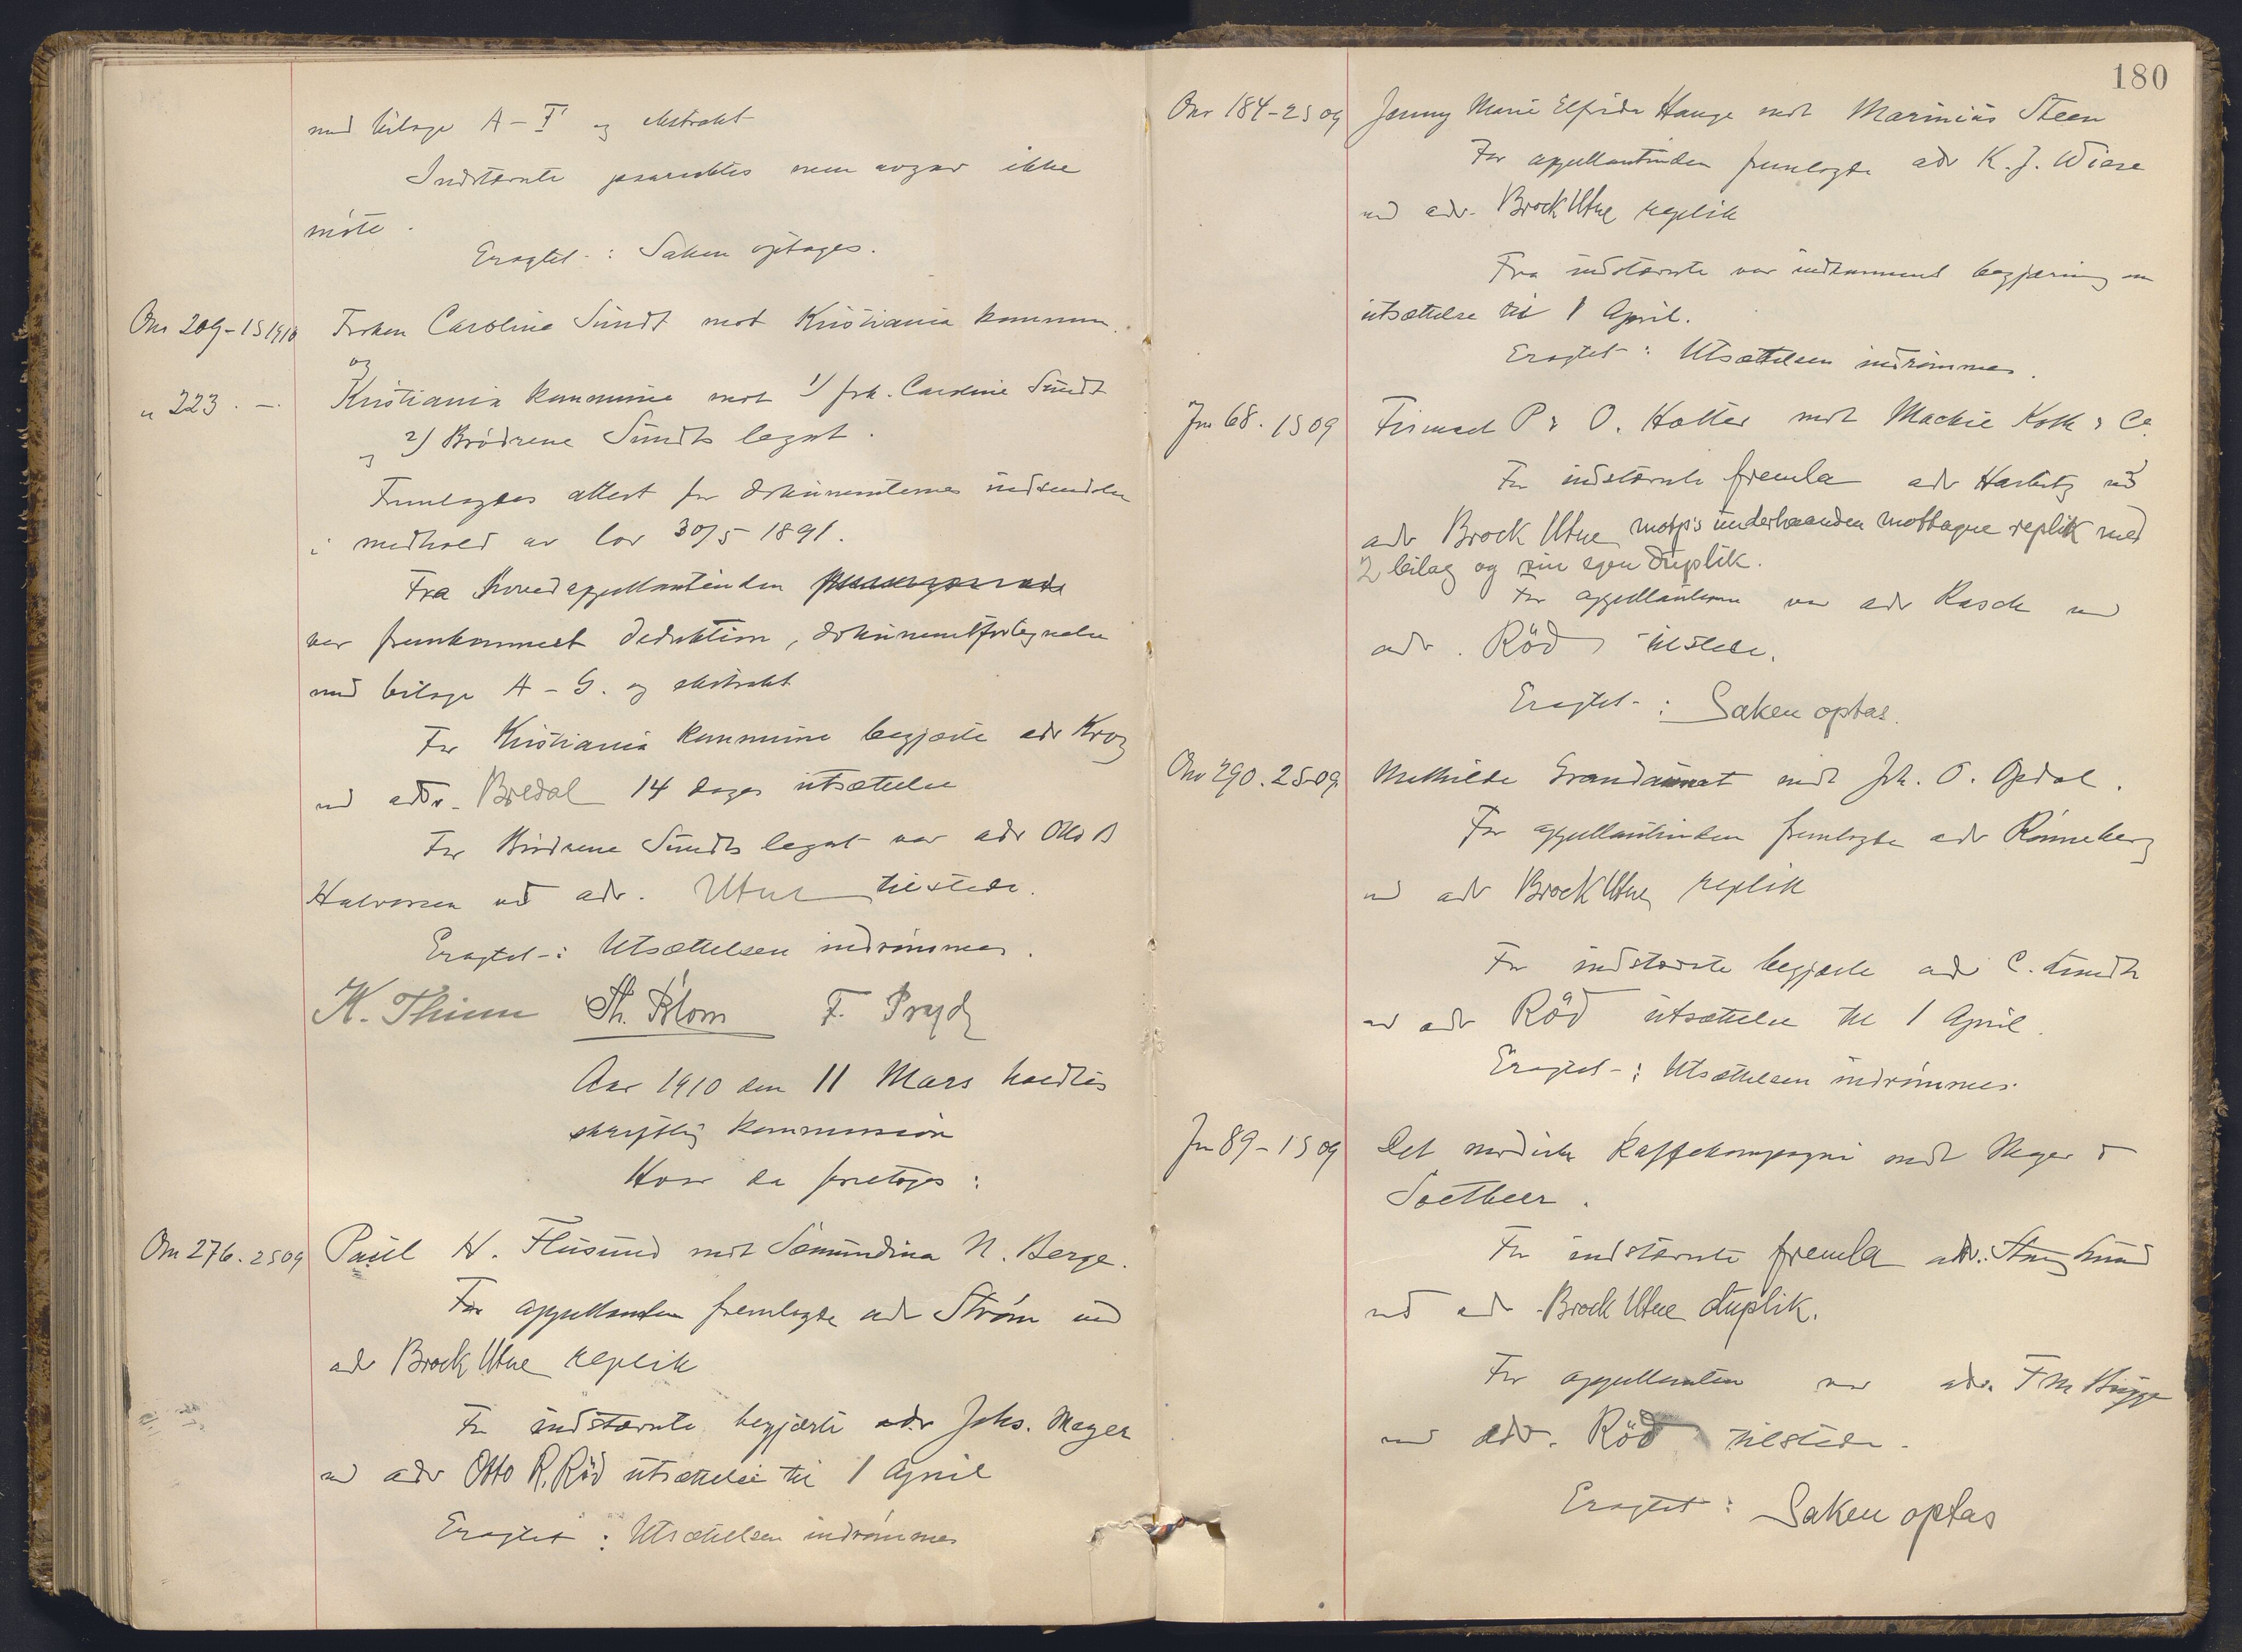 med bilage A – F og ekstrakt
Indstævnte paaraabtes men avgav ikke
møte.
Eragtet: Saken optages.
Onr 209 – 1S 1910 Frøken Caroline Sundt mot Kristiania kommune.
og
" 223. – Kristiania kommune mot 1/ frk. Caroline Sundt
og 2) Brødrene Sundts legat.
Fremlagdes attest for dokumenternes indsendelse
i medhold av lov 30/5 1891.
Fra hovedappellantinden
var fremkommet deduktion, dokumentfortegnelse
med bilage A – G. og ekstrakt
For Kristiania kommune begjærte adv Krog
ved adv. Bredal 14 dages utsættelse
For Brødrene Sundts legat var adv Otto B
Halvorsen ved adv. Utne tilstede.
Eragtet: Utsættelsen indrømmes.
K. Thinn Th. Blom F. Prydz
Aar 1910 den 11 Mars holdtes
skriftlig kommission
Hvor da foretoges:
Onr 276. 2S09 Paul H. Flusund mot Sæmundina N. Berge.
For appellanten fremlagde adv Strøm ved
adv Brock Utne replik
For indstævnte begjærte adv Johs. Meyer
ved adv Otto R. Röd utsættelse til 1 April
Eragtet: Utsættelsen indrømmes
180
Onr 184 – 2S 09 Jenny Marie Elfrida Hauge mot Marinius Steen
For appellantinden fremlagde adv K. J. Wiese
ved adv. Brock Utne replik
Fra indstævnte var indkommet begjæring om
utsættelse til 1 April.
Eragtet: Utsættelsen indrømmes.
Jnr 68. 1S09 Firmaet P. & O. Hatter mot Mackie Koth & Co.
For indstævnte fremla adv Harbitz ved
adv Brock Utne motp's underhaanden mottagne replik med
2 bilag og sin egen duplik.
For appellanterne var adv Rasch ved
adv. Röd tilstede.
Eragtet: Saken optas.
Onr 290. 2S-09. Mathilde Grandaunet mot Joh. O. Opdal.
For appellantinden fremlagde adv Rønneberg
ved adv Brock Utne replik
For indstævnte begjærte adv C. Lundh
ved adv Röd utsættelse til 1 April.
Eragtet: Utsættelsen indrømmes.
Jnr 89 – 1S 09 Det nordiske Kaffekompagni mot Meyer &
Soetbeer.
For indstævnte fremla adv. Stang Lund
ved adv Brock Utne duplik.
For appellanten var adv. F M Bugge
ved adv. Röd tilstede.
Eragtet: Saken optas